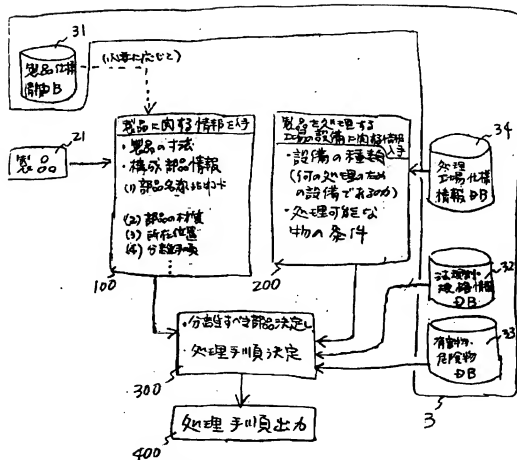 31
製品仕様
情報DB
(必要に応じて)
21
製品
製品に関する情報を入手
・製品の寸法
・構成部品情報
(1) 部品名称とコード
(2) 部品の材質
(3) 所在位置
(4) 分離手順
100
製品を処理する
工場設備に関する情報
入手
・設備の種類
(何の処理のため
の設備であるのか)
・処理可能な
物の条件
200
34
処理
工場仕様
情報DB
32
法規制・
規格情報
DB
33
有害物・
危険物
DB
3
・分離すべき部品決定し
処理手順決定
300
処理手順出力
400